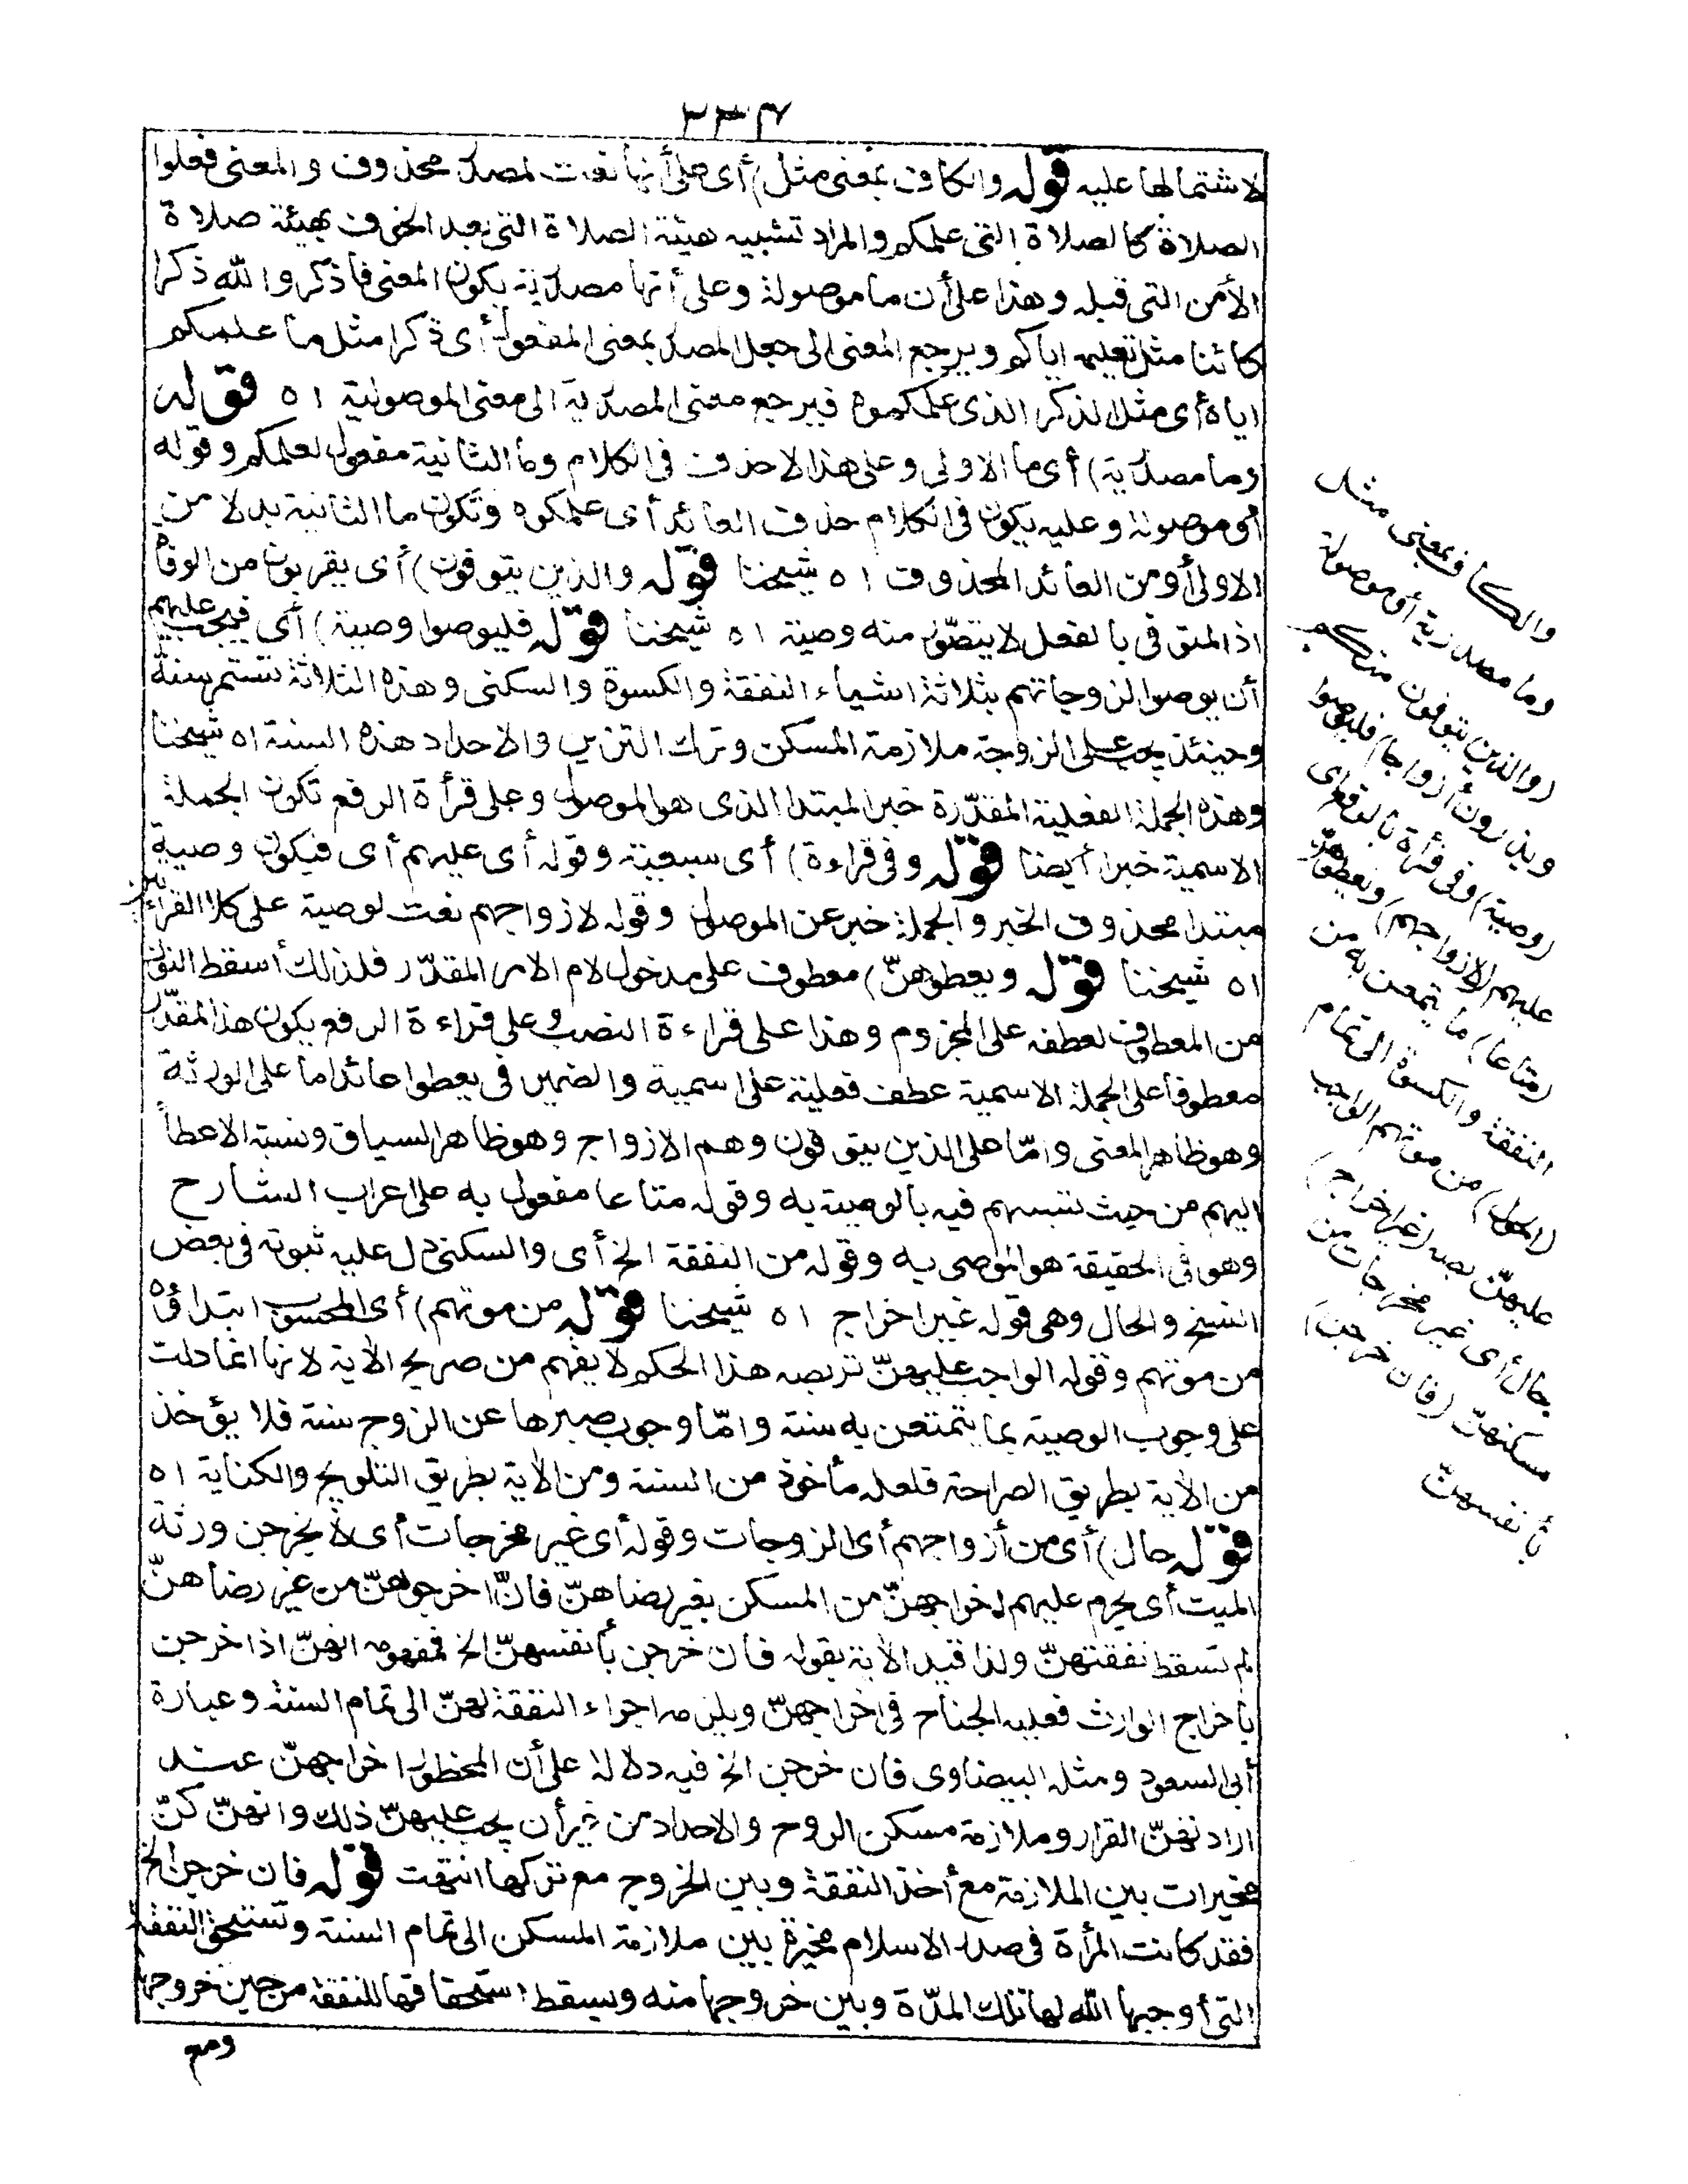 ٢٣٤
لاشتمالها عليه قوله والكاف بمعنى مثل) أى على أنها نعت لمصدر محذوف والمعنى فعلوا
الصلاة كالصلاة التى علمكم والمراد تشبيه هيئة الصلاة التى بعد الخوف بهيئة صلاة
الأمن التى قبله وهذا على أن ما موصولة وعلى أنها مصدرية يكون المعنى فاذكروا الله ذكرا
كائنا مثل تعليمه اياكم ويرجع المعنى الى جعل المصدر بمعنى المفعول أى ذكرا مثل ما علمكم
اياه أى مثل الذكر الذى علمكموه فيرجع معنى المصدرية الى معنى الموصولية اه قوله
وما مصدرية) أى ما الاولى وعلى هذا لا حذف فى الكلام وما الثانية مفعول لعلمكم وقوله
أو موصولة وعليه يكون فى الكلام حذف العائد أى علمكوه وتكون ما الثانية بدلا من
الاولى أو من العائد المحذوف اه شيخنا قوله والذين يتوفون) أى يقربون من الوفاة
اذ المتوفى بالفعل لا يتصور منه وصية اه شيخنا قوله فليوصوا وصية) أى فيجب عليهم
أن يوصوا لزوجاتهم بثلاثة اشياء النفقة والكسوة والسكنى وهذه الثلاثة تستمر سنة
وحينئذ يجب على الزوجة ملازمة المسكن وترك التزين والاحداد هذه السنة اه شيخنا
وهذه الجملة الفعلية المقدّرة خبر المبتدا الذى هو الموصول وعلى قرأة الرفع تكون الجملة
الاسمية خبرا أيضا قوله وفى قراءة) أى سبعية وقوله أى عليهم أى فيكون وصية
مبتدا محذوف الخبر والجملة خبر عن الموصول وقوله لازواجهم نعت لوصية على كلا القراءتين
اه شيخنا قوله ويعطوهنّ) معطوف على مدخول لام الامر المقدّر فلذلك أسقط النون
من المعطوف لعطفه على المجزوم وهذا على قراءة النصب وعلى قراءة الرفع يكون هذا المقدّر
معطوفا على الجملة الاسمية عطف فعلية على اسمية والضمير فى يعطوا عائد اما على الورثة
وهو ظاهر المعنى وامّا على الذين يتوفون وهم الازواج وهو ظاهر السياق ونسبة الاعطأ
اليهم من حيث تسببهم فيه بالوصية به وقوله متاعا مفعول به على اعراب الشارح
وهو فى الحقيقة هو الموصى به وقوله من النفقة الخ أى والسكنى دل عليه ثبوته فى بعض
النسخ والحال وهى قوله غير اخراج اه شيخنا قوله من موتهم) أى المحسوب ابتداؤه
من موتهم وقوله الواجب عليهنّ تربصه هذا الحكم لا يفهم من صريح الآية لانها انما دلت
على وجوب الوصية بما يتمتعن به سنة وامّا وجوب صبرها عن الزوج سنة فلا يؤخذ
من الآية بطريق الصراحة فلعله مأخوذ من السنة ومن الآية بطريق التلويح والكناية اه
قوله حال) أى من أزواجهم أى الزوجات وقوله أى غير مخرجات أى لا يخرجن ورثة
الميت أى يحرم عليهم اخراجهنّ من المسكن بغير رضاهنّ فانّ اخرجوهنّ من غير رضاهنّ
لم تسقط نفقتهنّ ولذا قيد الآية بقوله فان خرجن بأنفسهنّ الخ فمفهومه انهنّ اذا خرجن
باخراج الوارث فعليه الجناح فى اخراجهنّ ويلزمه اجراء النفقة لهنّ الى تمام السنة وعبارة
أبى السعود ومثله البيضاوى فان خرجن الخ فيه دلالة على أن المحظور اخراجهنّ عند
ارادتهنّ القرار وملازمة مسكن الزوج والاحداد من غير أن يجب عليهنّ ذلك وانهنّ كنّ
مخيرات بين الملازمة مع أخذ النفقة وبين الخروج مع تركها انتهت قوله فان خرجن الخ
فقد كانت المرأة فى صدر الاسلام مخيرة بين ملازمة المسكن الى تمام السنة وتستحق النفقة
التى أوجبها الله لها تلك المدّة وبين خروجها منه ويسقط استحقاقها للنفقة من حين خروجها
ومع
والكاف بمعنى مثل
وما مصدرية أو موصولة
(والذين يتوفون منكم
ويذرون أزواجا) فليوصوا
(وصية) وفى قرأة بالرفع أى
عليهم (لازواجهم) ويعطوهنّ
(متاعا) ما يتمتعن به من
النفقة والكسوة الى تمام
(الحول) من موتهم الواجب
عليهنّ تربصه (غير اخراج)
حال أى غير مخرجات من
مسكنهنّ (فان خرجن)
بأنفسهنّ